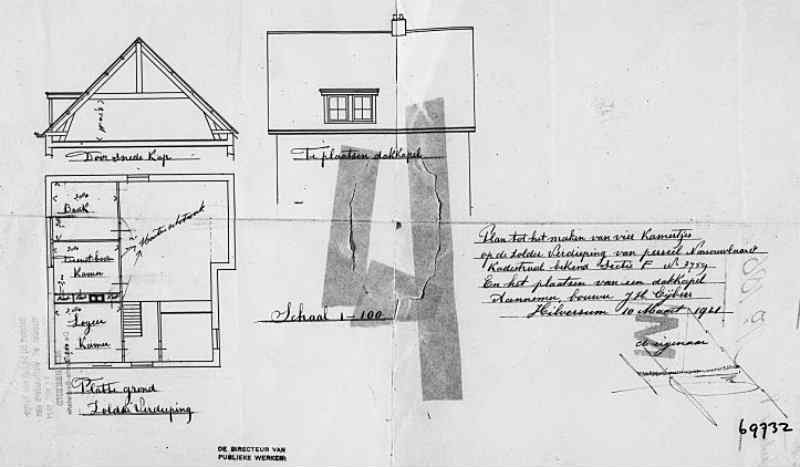 Doorsnede Kap
Te plaatsen dakkapel
Badk
Dienstbode
Kamer
Logeer
Kamer
Houten schotwerk
Plan tot het maken van vier Kamertjes
op de Zolder Verdieping van perceel
Kadestraal bekend Sectie F No 3759
En het plaatsen van een dakkapel
Aannemer bouwer J H
Hilversum 10 Maart 1921
de eigenaar
Schaal 1=100
Platte grond
Zolder Verdieping
69732
DE DIRECTEUR VAN
PUBLIEKE WERKEN